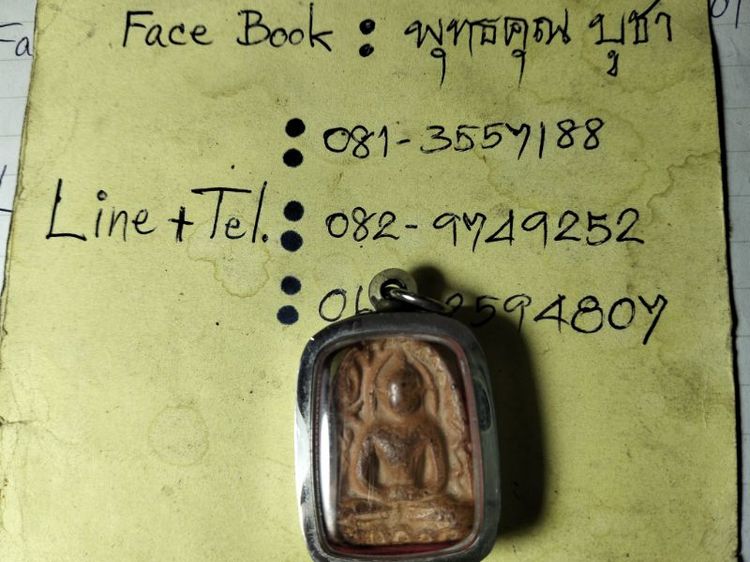 Face Book : พุทธคุณ บูชา
: 081-3557188
Line + Tel. : 082-9749252
: 06 2594807